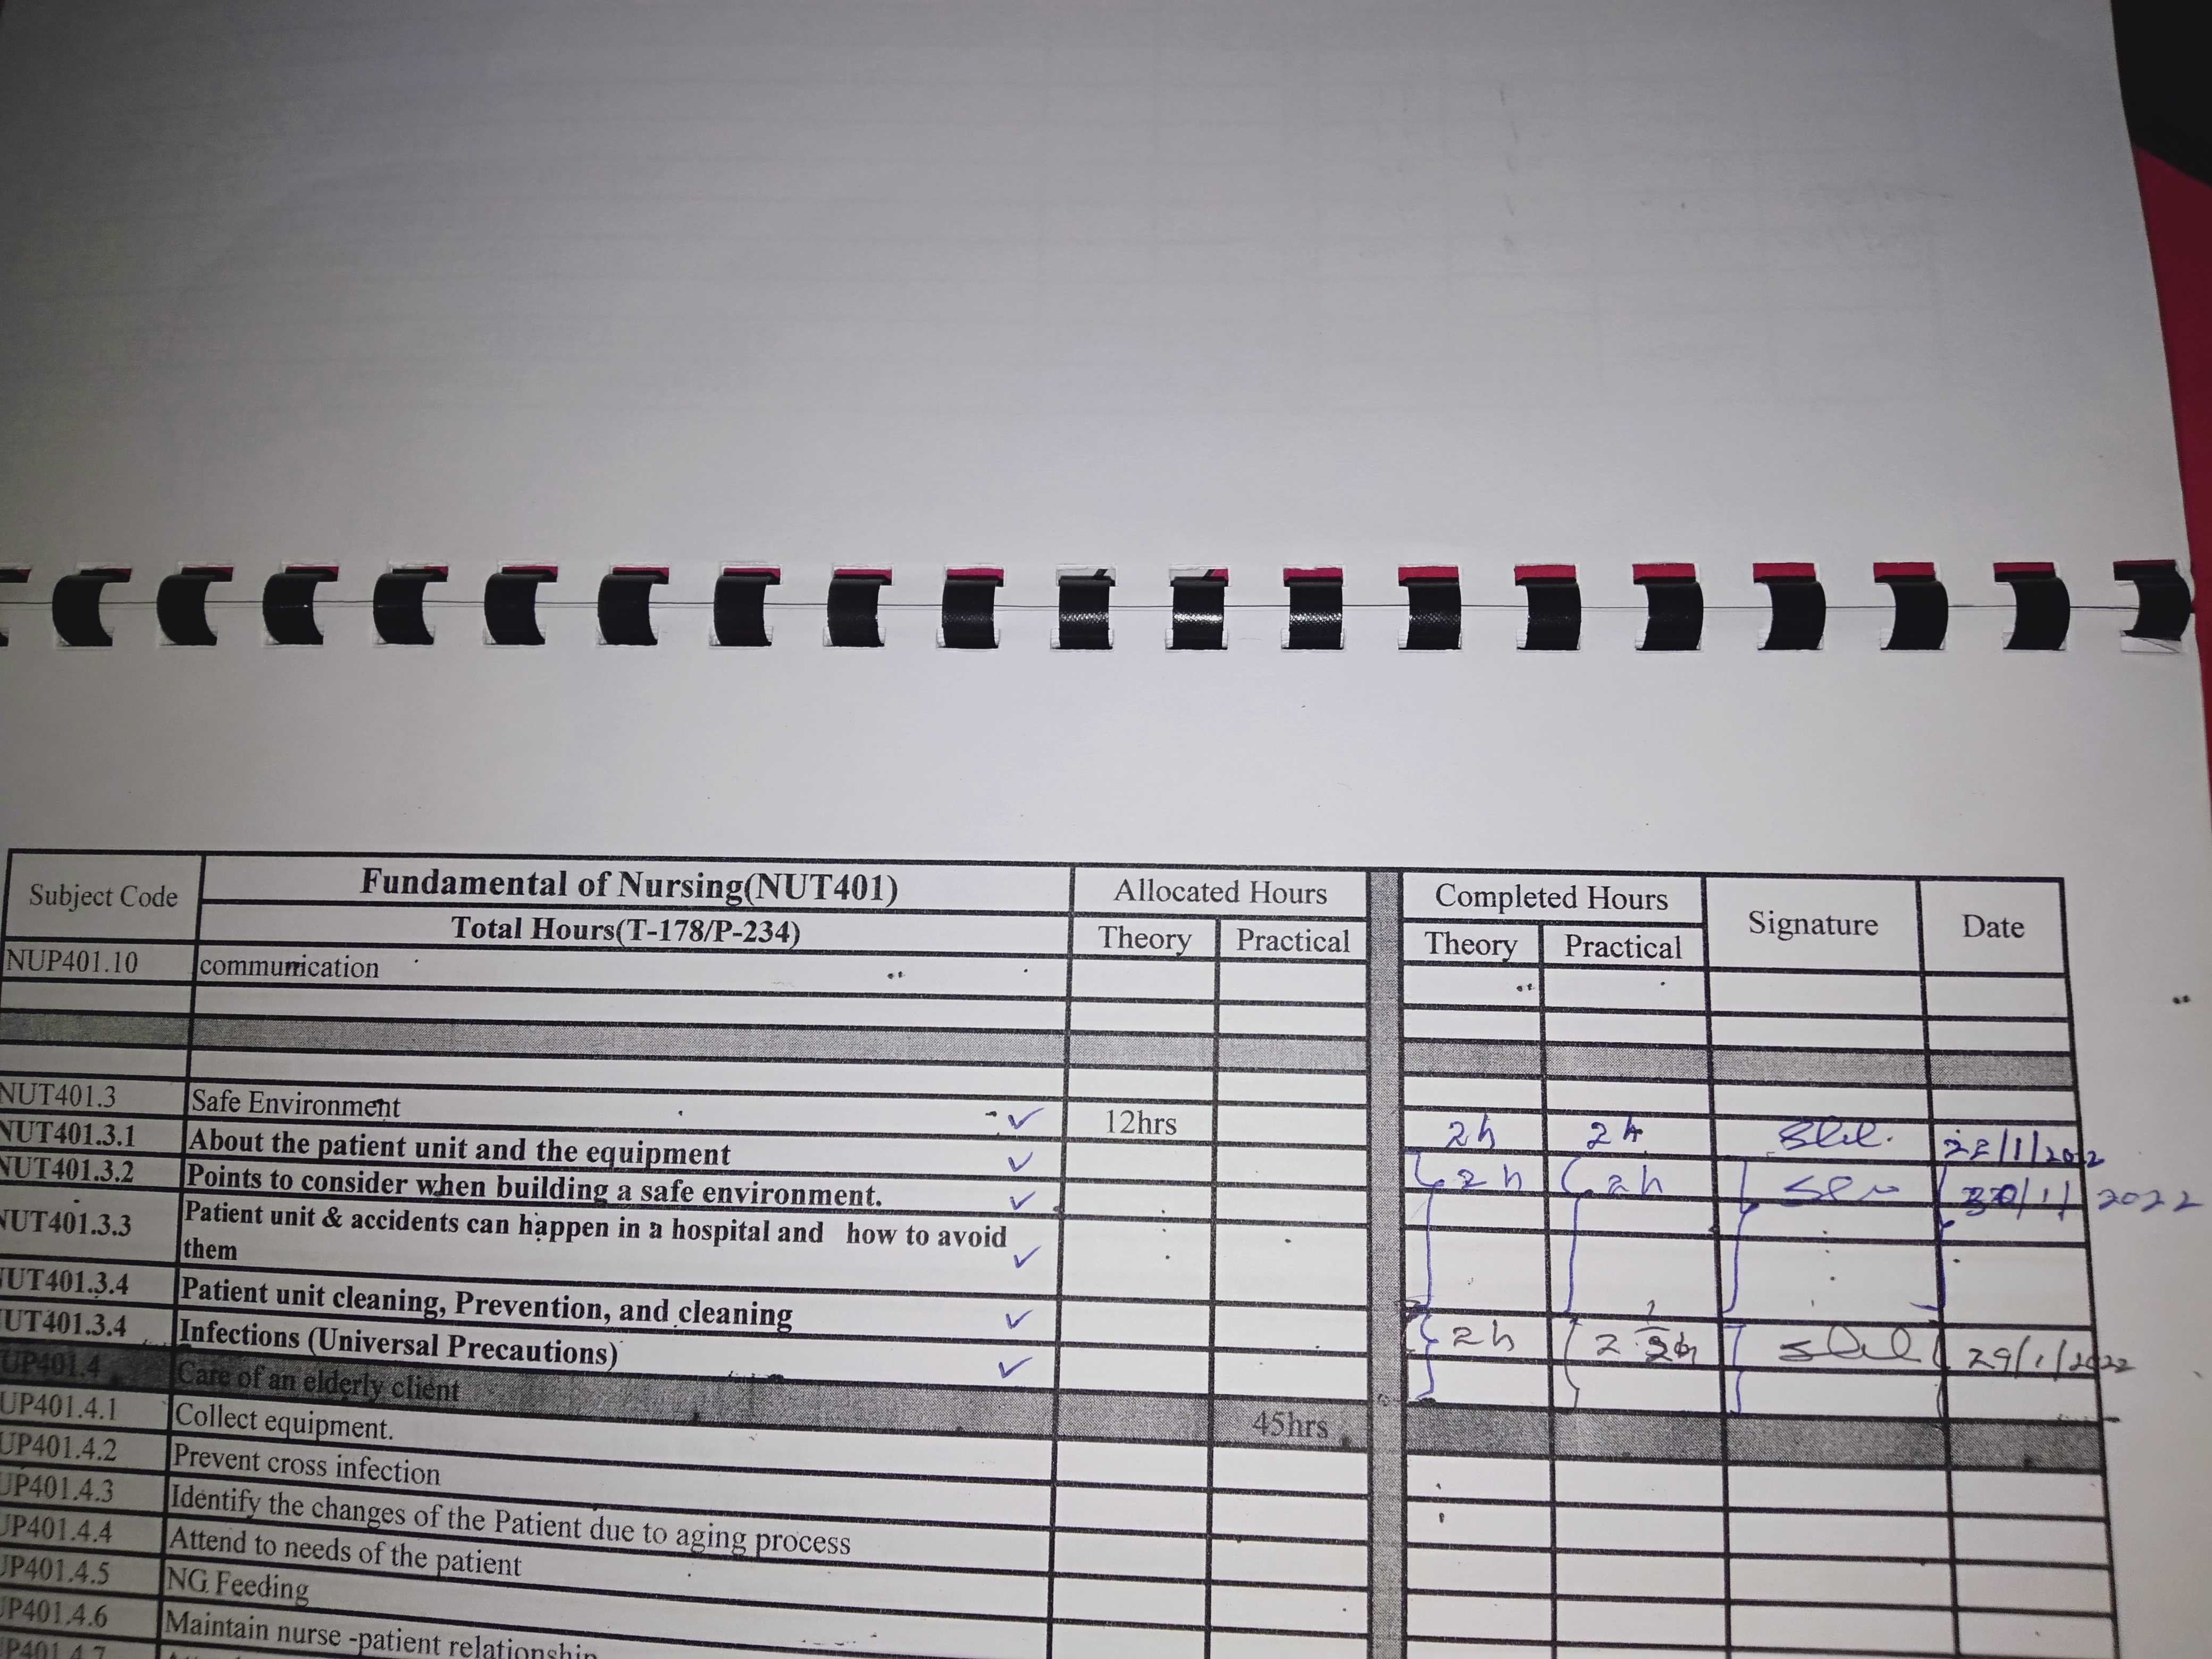 Subject Code Fundamental of Nursing(NUT401) Allocated Hours Completed Hours Signature Date
Total Hours(T-178/P-234) Theory Practical Theory Practical
NUP401.10 communication
NUT401.3 Safe Environment 12hrs 2h 2h
NUT401.3.1 About the patient unit and the equipment 2h 2h /1/2022
NUT401.3.2 Points to consider when building a safe environment. /1/ 2022
NUT401.3.3 Patient unit & accidents can happen in a hospital and how to avoid
them
UT401.3.4 Patient unit cleaning, Prevention, and cleaning
UT401.3.4 Infections (Universal Precautions) 2h 29/1/2022
UP401.4 Care of an elderly client 45hrs
UP401.4.1 Collect equipment.
UP401.4.2 Prevent cross infection
UP401.4.3 Identify the changes of the Patient due to aging process
UP401.4.4 Attend to needs of the patient
UP401.4.5 NG Feeding
P401.4.6 Maintain nurse -patient relationship
P401.4.7